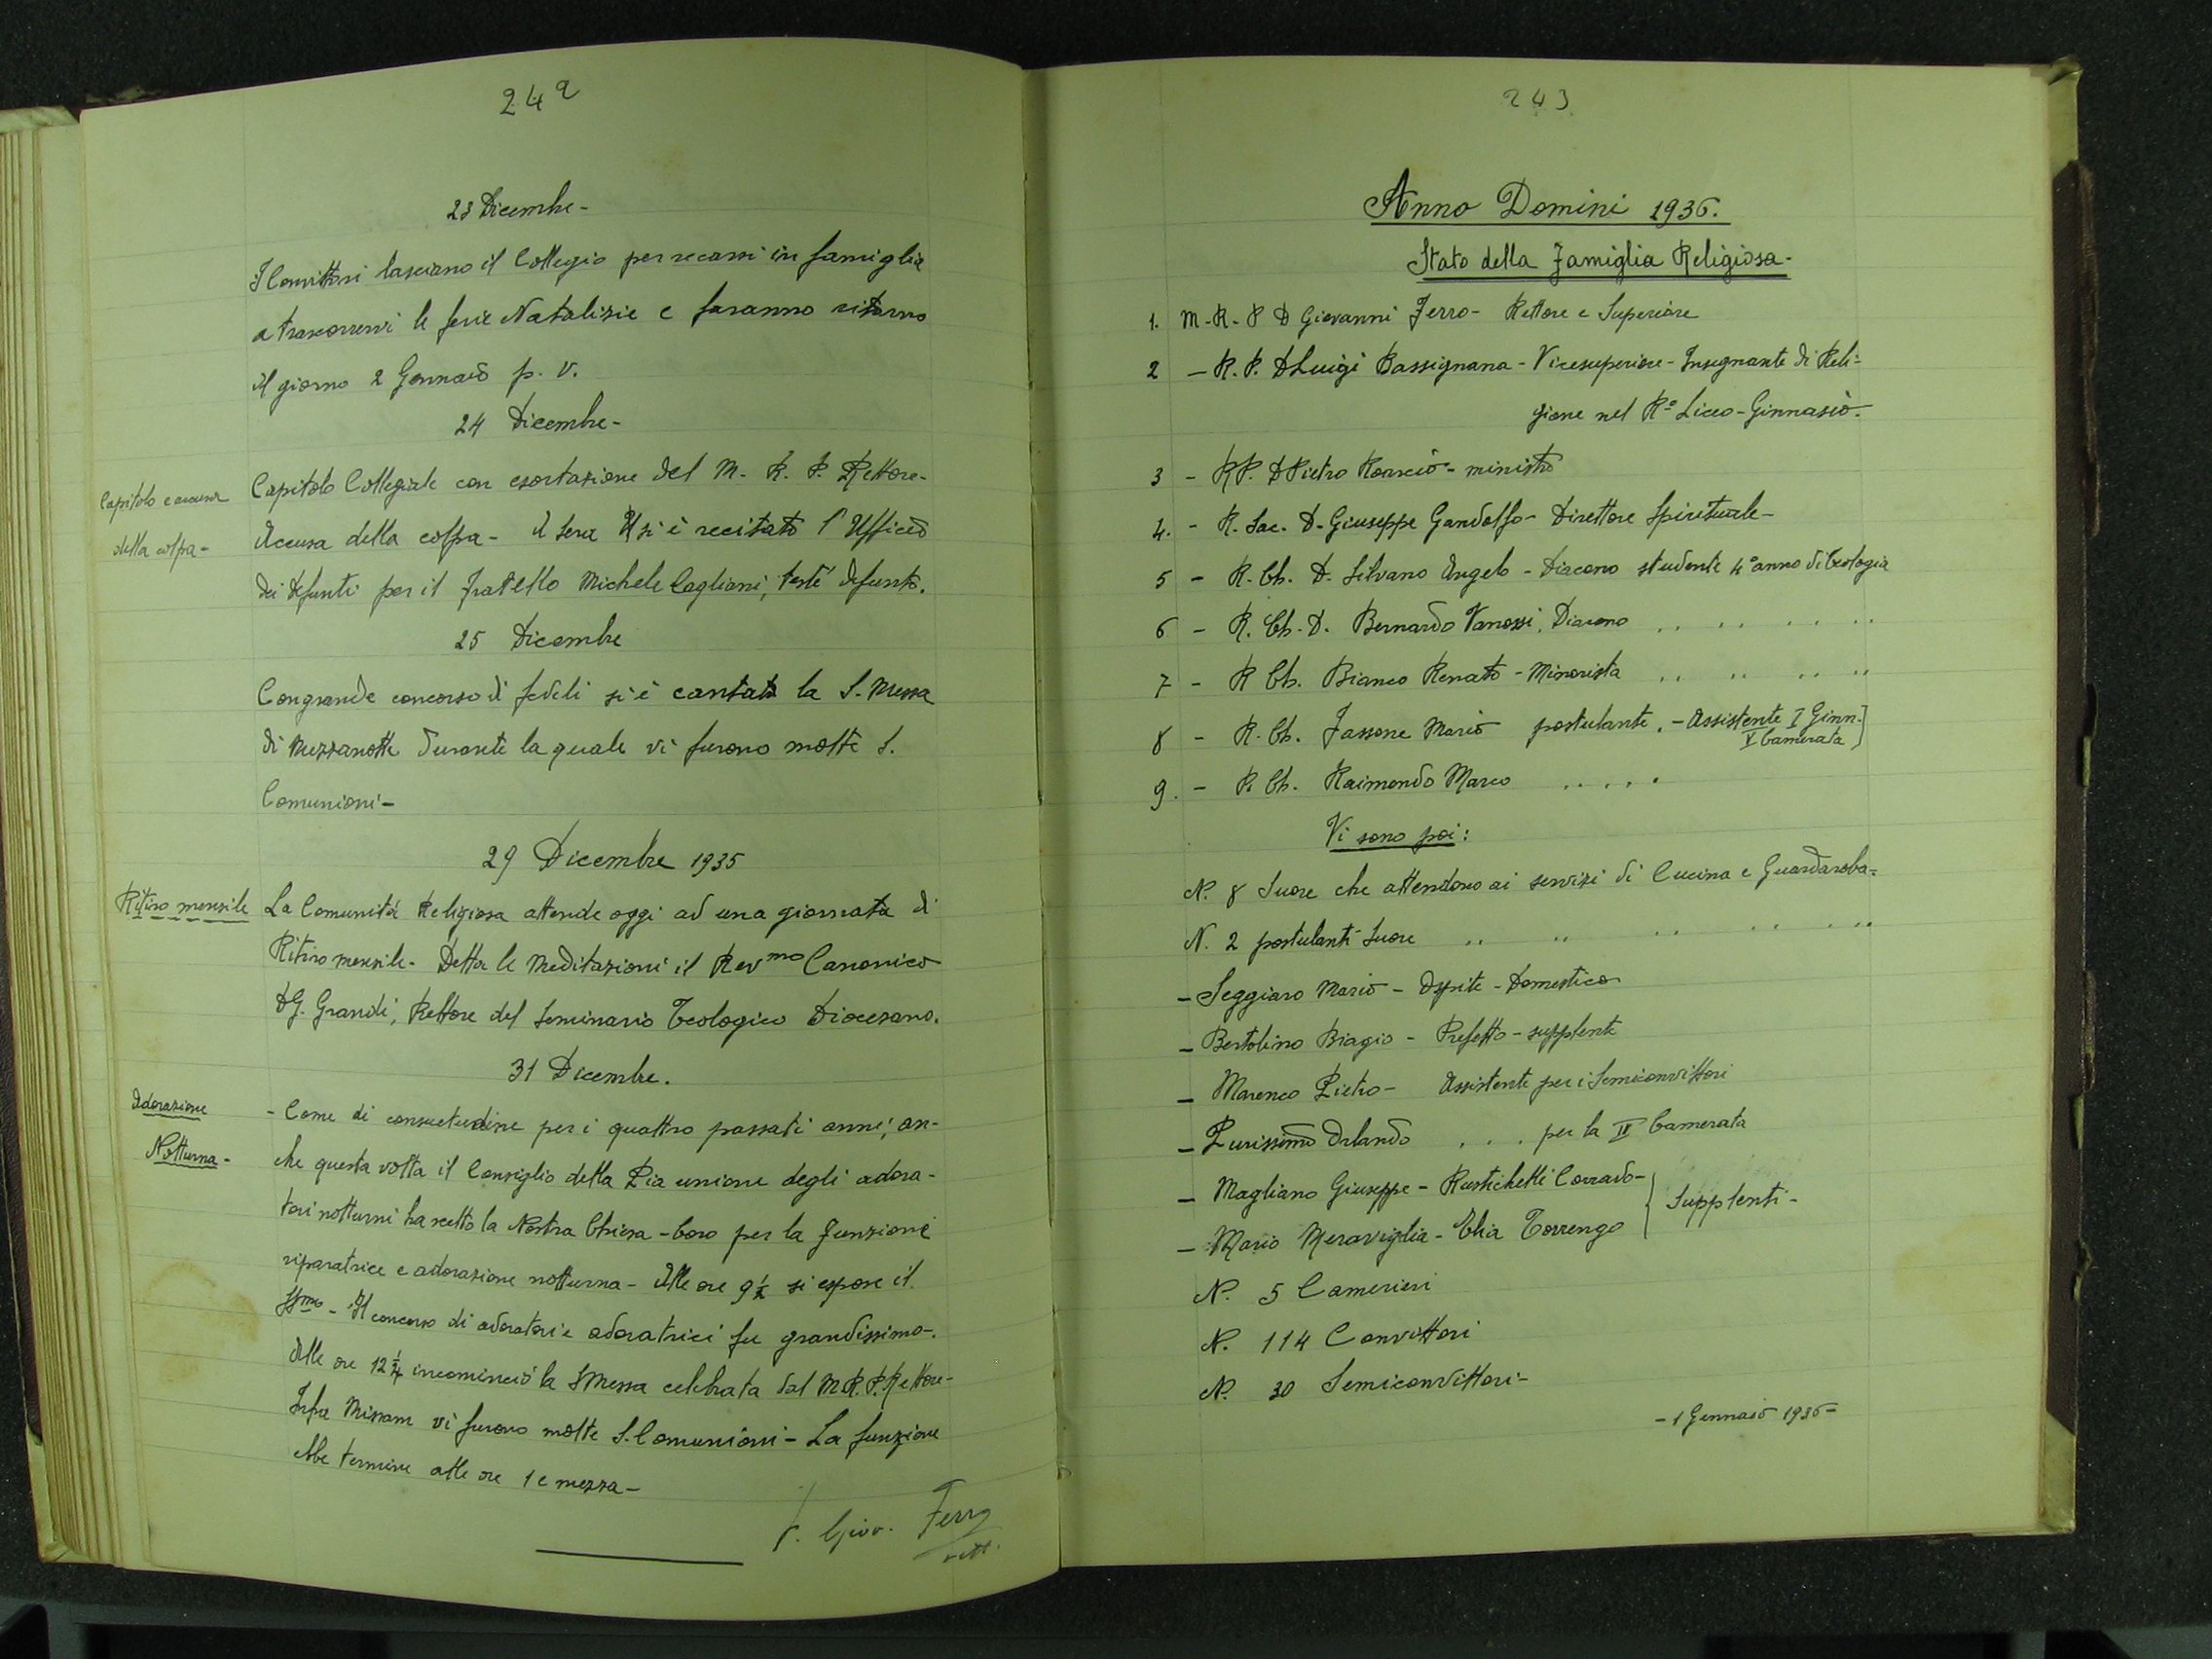 242
23 Dicembre-
I Convittori lasciano il Collegio per recarsi in famiglia
a trascorrervi le ferie Natalizie e faranno ritorno
il giorno 2 Gennaio p. v.
24 Dicembre-
Capitolo e accusa
della colpa-
Capitolo Collegiale con esortazione del M. R. P. Rettore-
Accusa della colpa- A sera si è recitato l'Ufficio
dei defunti per il fratello Michele Cagliani, testé defunto.
25 Dicembre
Con grande concorso di fedeli si è cantata la S. Messa
di Mezzanotte durante la quale vi furono molte S.
Comunioni-
29 Dicembre 1935
Ritiro mensile
La Comunità Religiosa attende oggi ad una giornata di
Ritiro mensile. Detta le Meditazioni il Rev mo Canonico
D G. Grandi, Rettore del Seminario Teologico Diocesano.
31 Dicembre.
Adorazione
Notturna-
- Come di consuetudine per i quattro passati anni, an-
che questa volta il Consiglio della Pia unione degli adora-
tori notturni ha scelto la Nostra Chiesa - Coro per la funzione
riparatrice e adorazione notturna- Alle ore 9½ si espose il
SSmo - Il concorso di adoratori e adoratrici fu grandissimo-.
Alle ore 12¼ incominciò la S Messa celebrata dal M.R.P. Rettore-
Infra Missam vi furono molte S. Comunioni- La funzione
ebbe termine alle ore 1 e mezza-
P. Giov. Ferro
rett.
243
Anno Domini 1936.
Stato della Famiglia Religiosa-
1. M-R-P D Giovanni Ferro- Rettore e Superiore
2 - R. P. D Luigi Bassignana - Vicesuperiore - Insegnante di Reli-
gione nel Ro Liceo-Ginnasio.
3 - RP. D Pietro Roascio- ministro
4. - R. Sac. D. Giuseppe Gandolfo- Direttore Spirituale-
5 - R. Ch. D. Silvano Angelo - Diacono studente 4° anno di teologia
6 - R. Ch. D. Bernardo Vanossi. Diacono .. .. .. ..
7 - R Ch. Bianco Renato - Minorista .. .. .. ..
8 - R. Ch. Fassone Mario postulante. - Assistente I Ginn.]
V Camerata
9. - R. Ch. Raimondo Marco .....
Vi sono poi:
N. 8 Suore che attendono ai servizi di Cucina e Guardaroba-
N. 2 postulanti Suore .. .. .. .. ..
- Seggiaro Mario - Ospite - Domestico
- Bertolino Biagio - Prefetto - supplente
- Marenco Pietro- Assistente per i Semiconvittori
- Purissimo Orlando . . . per la IV Camerata
- Magliano Giuseppe - Rustichelli Corrado-
- Mario Meraviglia - Elia Torrengo
Supplenti-
N. 5 Camerieri
N. 114 Convittori
N. 30 Semiconvittori-
- 1 Gennaio 1936-